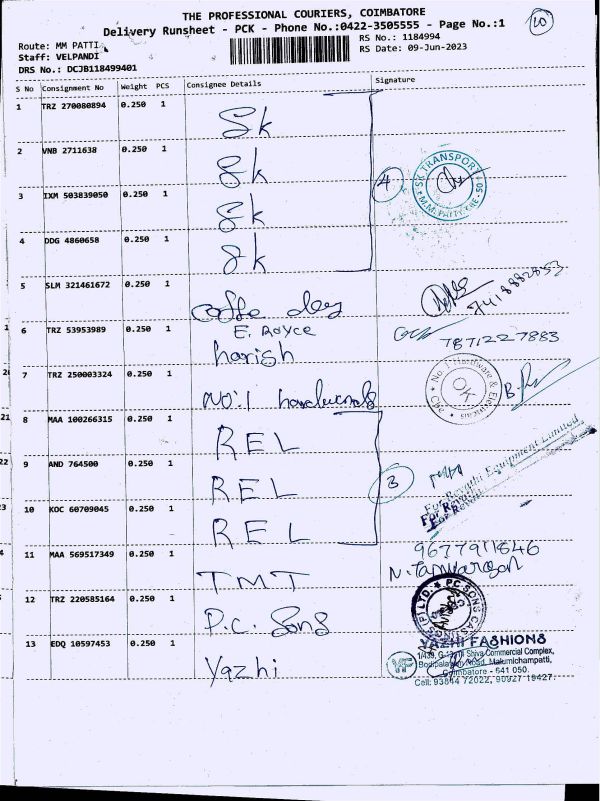 THE PROFESSIONAL COURIERS, COIMBATORE
Delivery Runsheet - PCK - Phone No.:0422-3505555 - Page No.:1
Route: MM PATTI
RS No.: 1184994
Staff: VELPANDI
RS Date: 09-Jun-2023
DRS No.: DCJB118499401
S No Consignment No Weight PCS Consignee Details Signature
1 TRZ 270080894 0.250 1 Sk
2 VNB 2711638 0.250 1 Sk
4 SK TRANSPORT
3 IXM 503839050 0.250 1 Sk
4 DDG 4860658 0.250 1 Sk
5 SLM 321461672 0.250 1 coffe day
6 TRZ 53953989 0.250 1 E. Royce
harish
7871227883
7 TRZ 250003324 0.250 1 NO:1 hardwerals
No.1 Hardware & Electricals
OK
8 MAA 100266315 0.250 1 REL
9 AND 764500 0.250 1 REL
3
For Revathi Equipment Limited
10 KOC 60709045 0.250 1 REL
11 MAA 569517349 0.250 1 TMT
9677911846
12 TRZ 220585164 0.250 1 P.C. Sons
PC SONS CASTINGS (P) LTD.
13 EDQ 10597453 0.250 1 Yazhi
YAZHI FASHIONS
Shiva Commercial Complex,
Road, Malumichampatti,
Coimbatore - 641 050.
Cell: 93644 72022, 90927 19427.